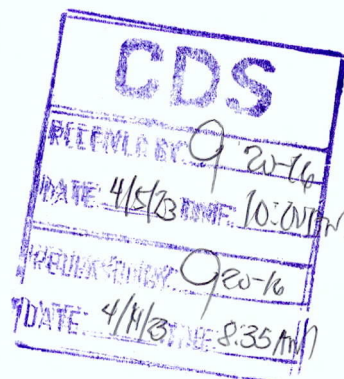 CDS
RECEIVED BY: 20-16
DATE: 4/5/23 TIME: 10:00
20-16
DATE: 4/14/23 TIME: 8:35 AM